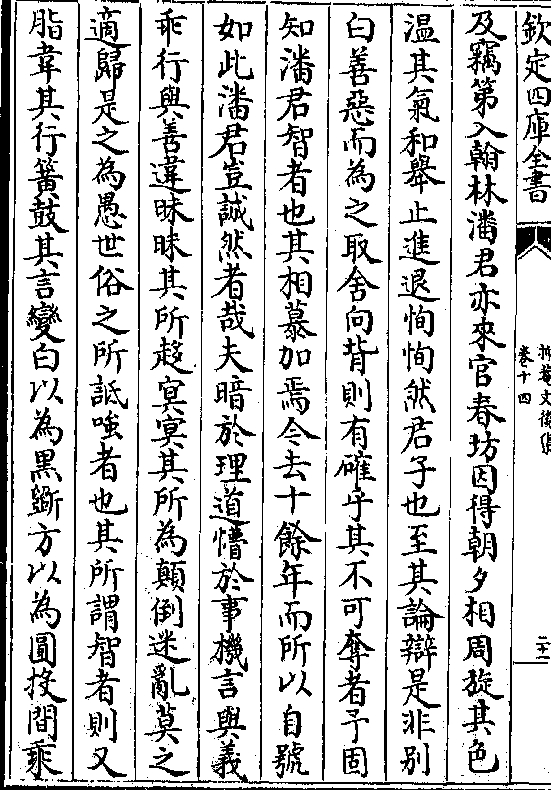 欽定四庫全書
卷十四
二十一
及竊第入翰林潘君亦來官春坊因得朝夕相周旋其色
温其氣和舉止進退恂恂然君子也至其論辯是非别
白善惡而為之取舍向背則有確乎其不可奪者予固
知潘君智者也其相慕加焉今去十餘年而所以自號
如此潘君豈誠然者哉夫暗於理道懵於事機言與義
乖行與善違昧昧其所趍冥冥其所為顛倒迷亂莫之
適歸是之為愚世俗之所詆嗤者也其所謂智者則又
脂韋其行簧鼓其言變白以為黒斵方以為圓投間乘